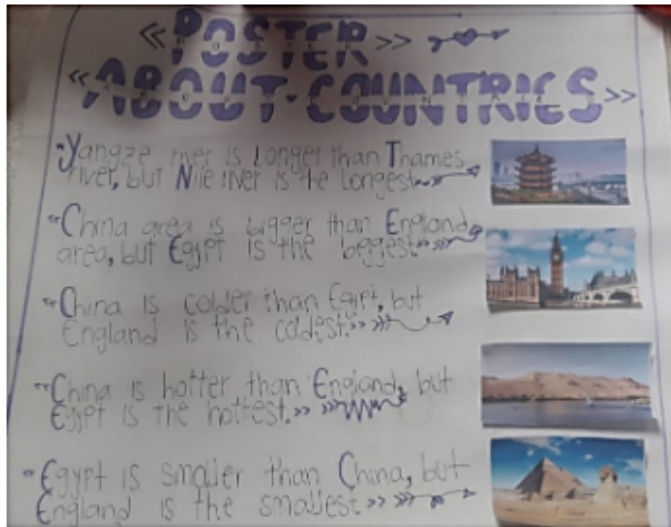 «POSTER»
«ABOUT-COUNTRIES»
"Yangze river is Longer than Thames
river, but Nile river is the longest»
"China area is bigger than England
area, but Egypt is the biggest»
"China is colder than Egipt, but
England is the coldest.»
"China is hotter than England, but
Egypt is the hottest.»
"Egypt is smaller than China, but
England is the smallest»